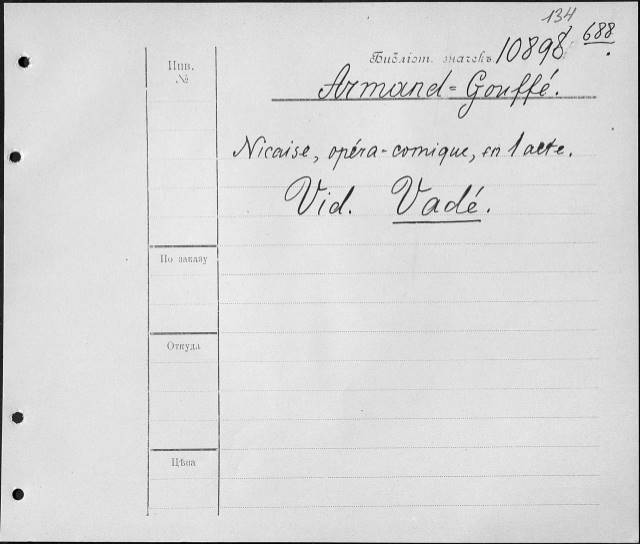 134
688
Библіот. значекъ 10898
Инв.
№
Armand-Gouffé.
Nicaise, opéra-comique, en 1 acte.
Vid. Vadé.
По заказу
Откуда
Цѣна